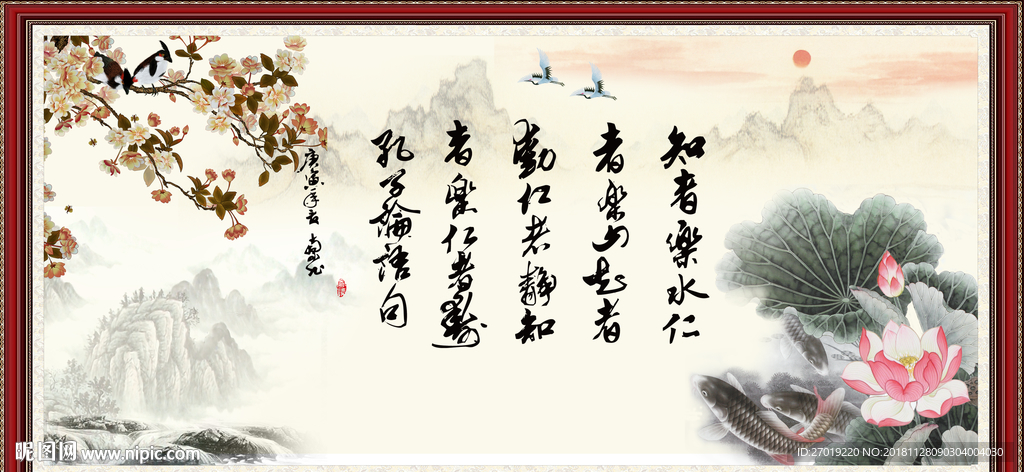 知者樂水仁
者樂山知者
動仁者靜知
者樂仁者壽
孔子論語句
昵图网 www.nipic.com
ID:27019220 NO:20181128090304004030